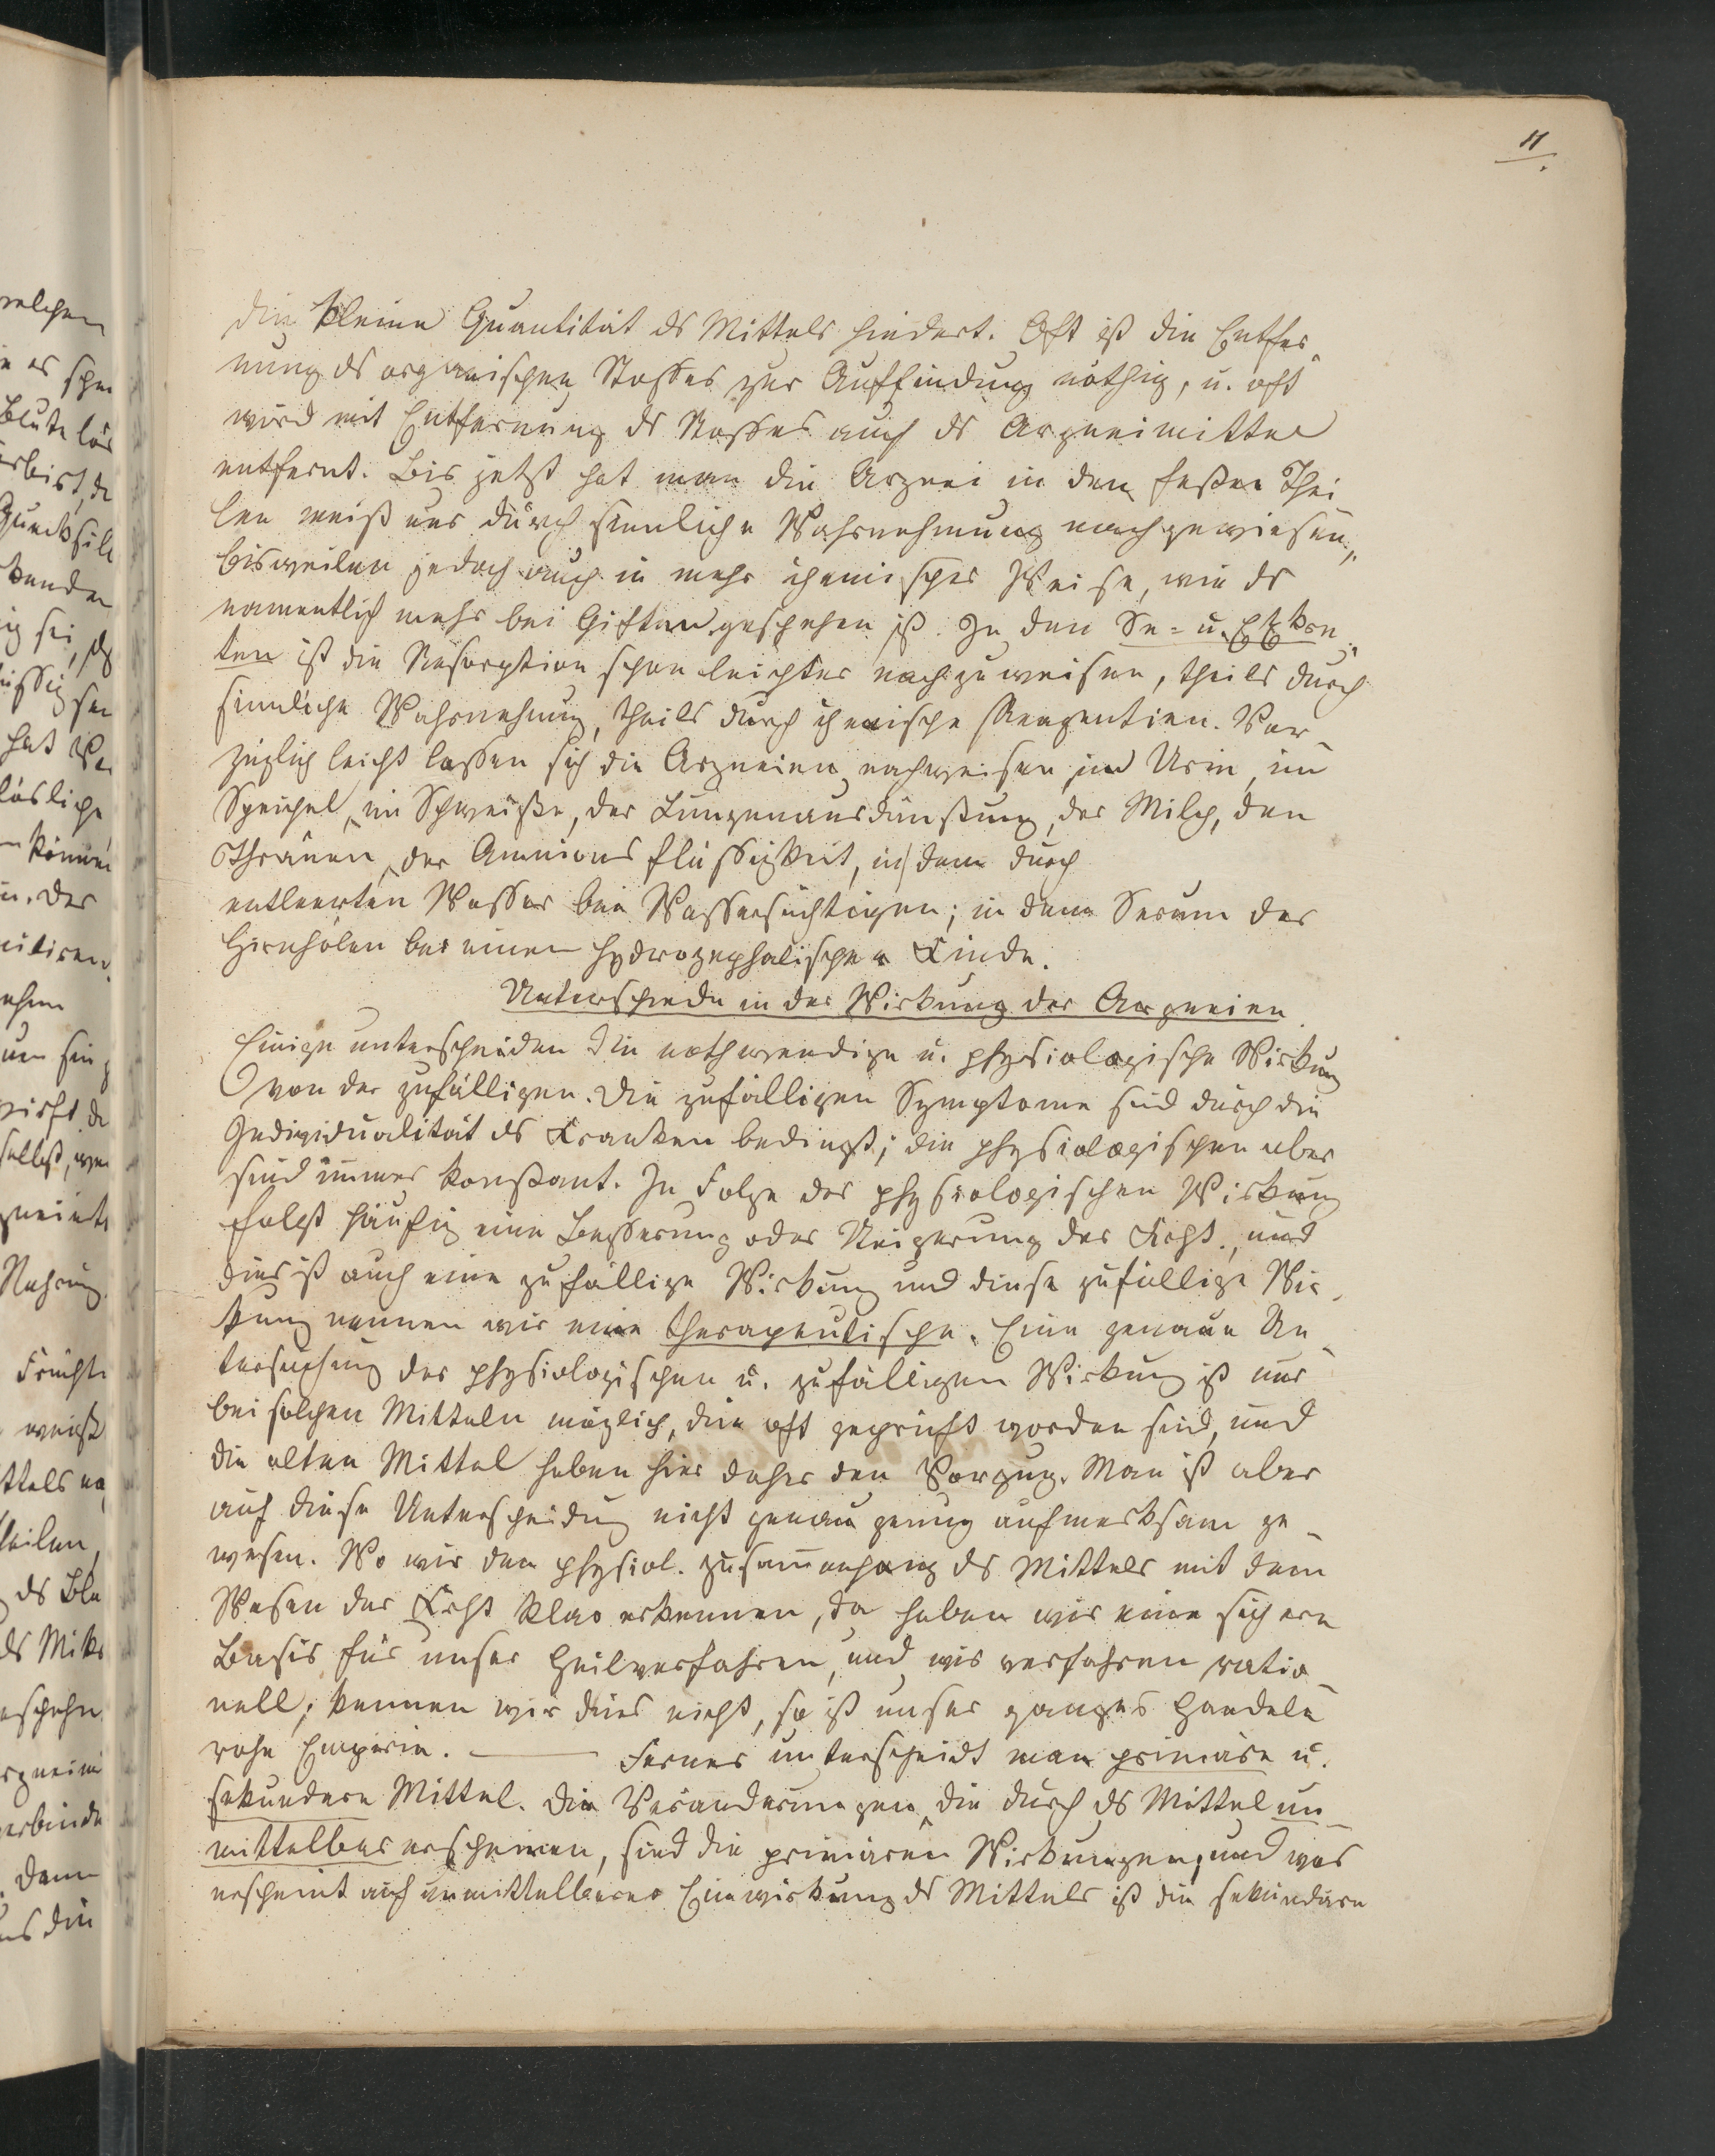 11
die kleine Quantität ds Mittels hindert. Oft ist die Entfer
nung ds organischen Stoffes zur Auffindung nöthig, u. oft
wird mit Entfernung ds Stoffes auch ds Arzneimittel
entfernt. Bis jetzt hat man die Arznei in den festen Thei
len meist nur durch sinnliche Wahrnehmung nachgewiesen,
bisweilen jedoch auch in mehr chemischer Weise, wie ds
namentlich mehr bei Giften geschehen ist. In den Se- u. Exkre
ten ist die Resorption schon leichter nachzuweisen, theils durch
sinnliche Wahrnehmung, theils durch chemische Reagentien. Vor-
züglich leicht lassen sich die Arzneien nachweisen im Urin, im
Speichel, im Schweiße, der Lungenausdünstung, der Milch, den
Thränen, der Amnionsflüssigkeit, in dem durch
entleerten Wasser bei Wassersüchtigen; in dem Serum der
Hirnhölen bei einem hydrozephalischen Kinde.
Unterschiede in der Wirkung der Arzneien.
Einige unterscheiden die nothwendige u. physiologische Wirkung
von der zufälligen. Die zufälligen Symptome sind durch die
Individualität ds Kranken bedingt; die physiologischen aber
sind immer konstant. In Folge der physiologischen Wirkung
folgt häufig eine Besserung oder Steigerung der Krht., und
dies ist auch eine zufällige Wirkung und diese zufällige Wir-
kung nennen wir eine therapeutische. Eine genaue Un-
tersuchung der physiologischen u. zufälligen Wirkung ist nur
bei solchen Mitteln möglich, die oft geprüft worden sind, und
die alten Mittel haben hier daher den Vorzug. Man ist aber
auf diese Unterscheidung nicht genau genug aufmerksam ge-
wesen. Wo wir den physiol. Zusam̅enhang ds Mittels mit dem
Wesen der Krht klar erkennen, da haben wir eine sichere
Basis für unser Heilverfahren, und wir verfahren ratio-
nell; kennen wir dies nicht, so ist unser ganzes Handeln
rohe Empirie. — Ferner unterscheidt man primäre u.
sekundere Mittel. Die Veränderungen, die durch ds Mittel un-
mittelbar erscheinen, sind die primären Wirkungen, und was
erscheint auf unmittelbarer Einwirkung ds Mittels ist die sekundäre